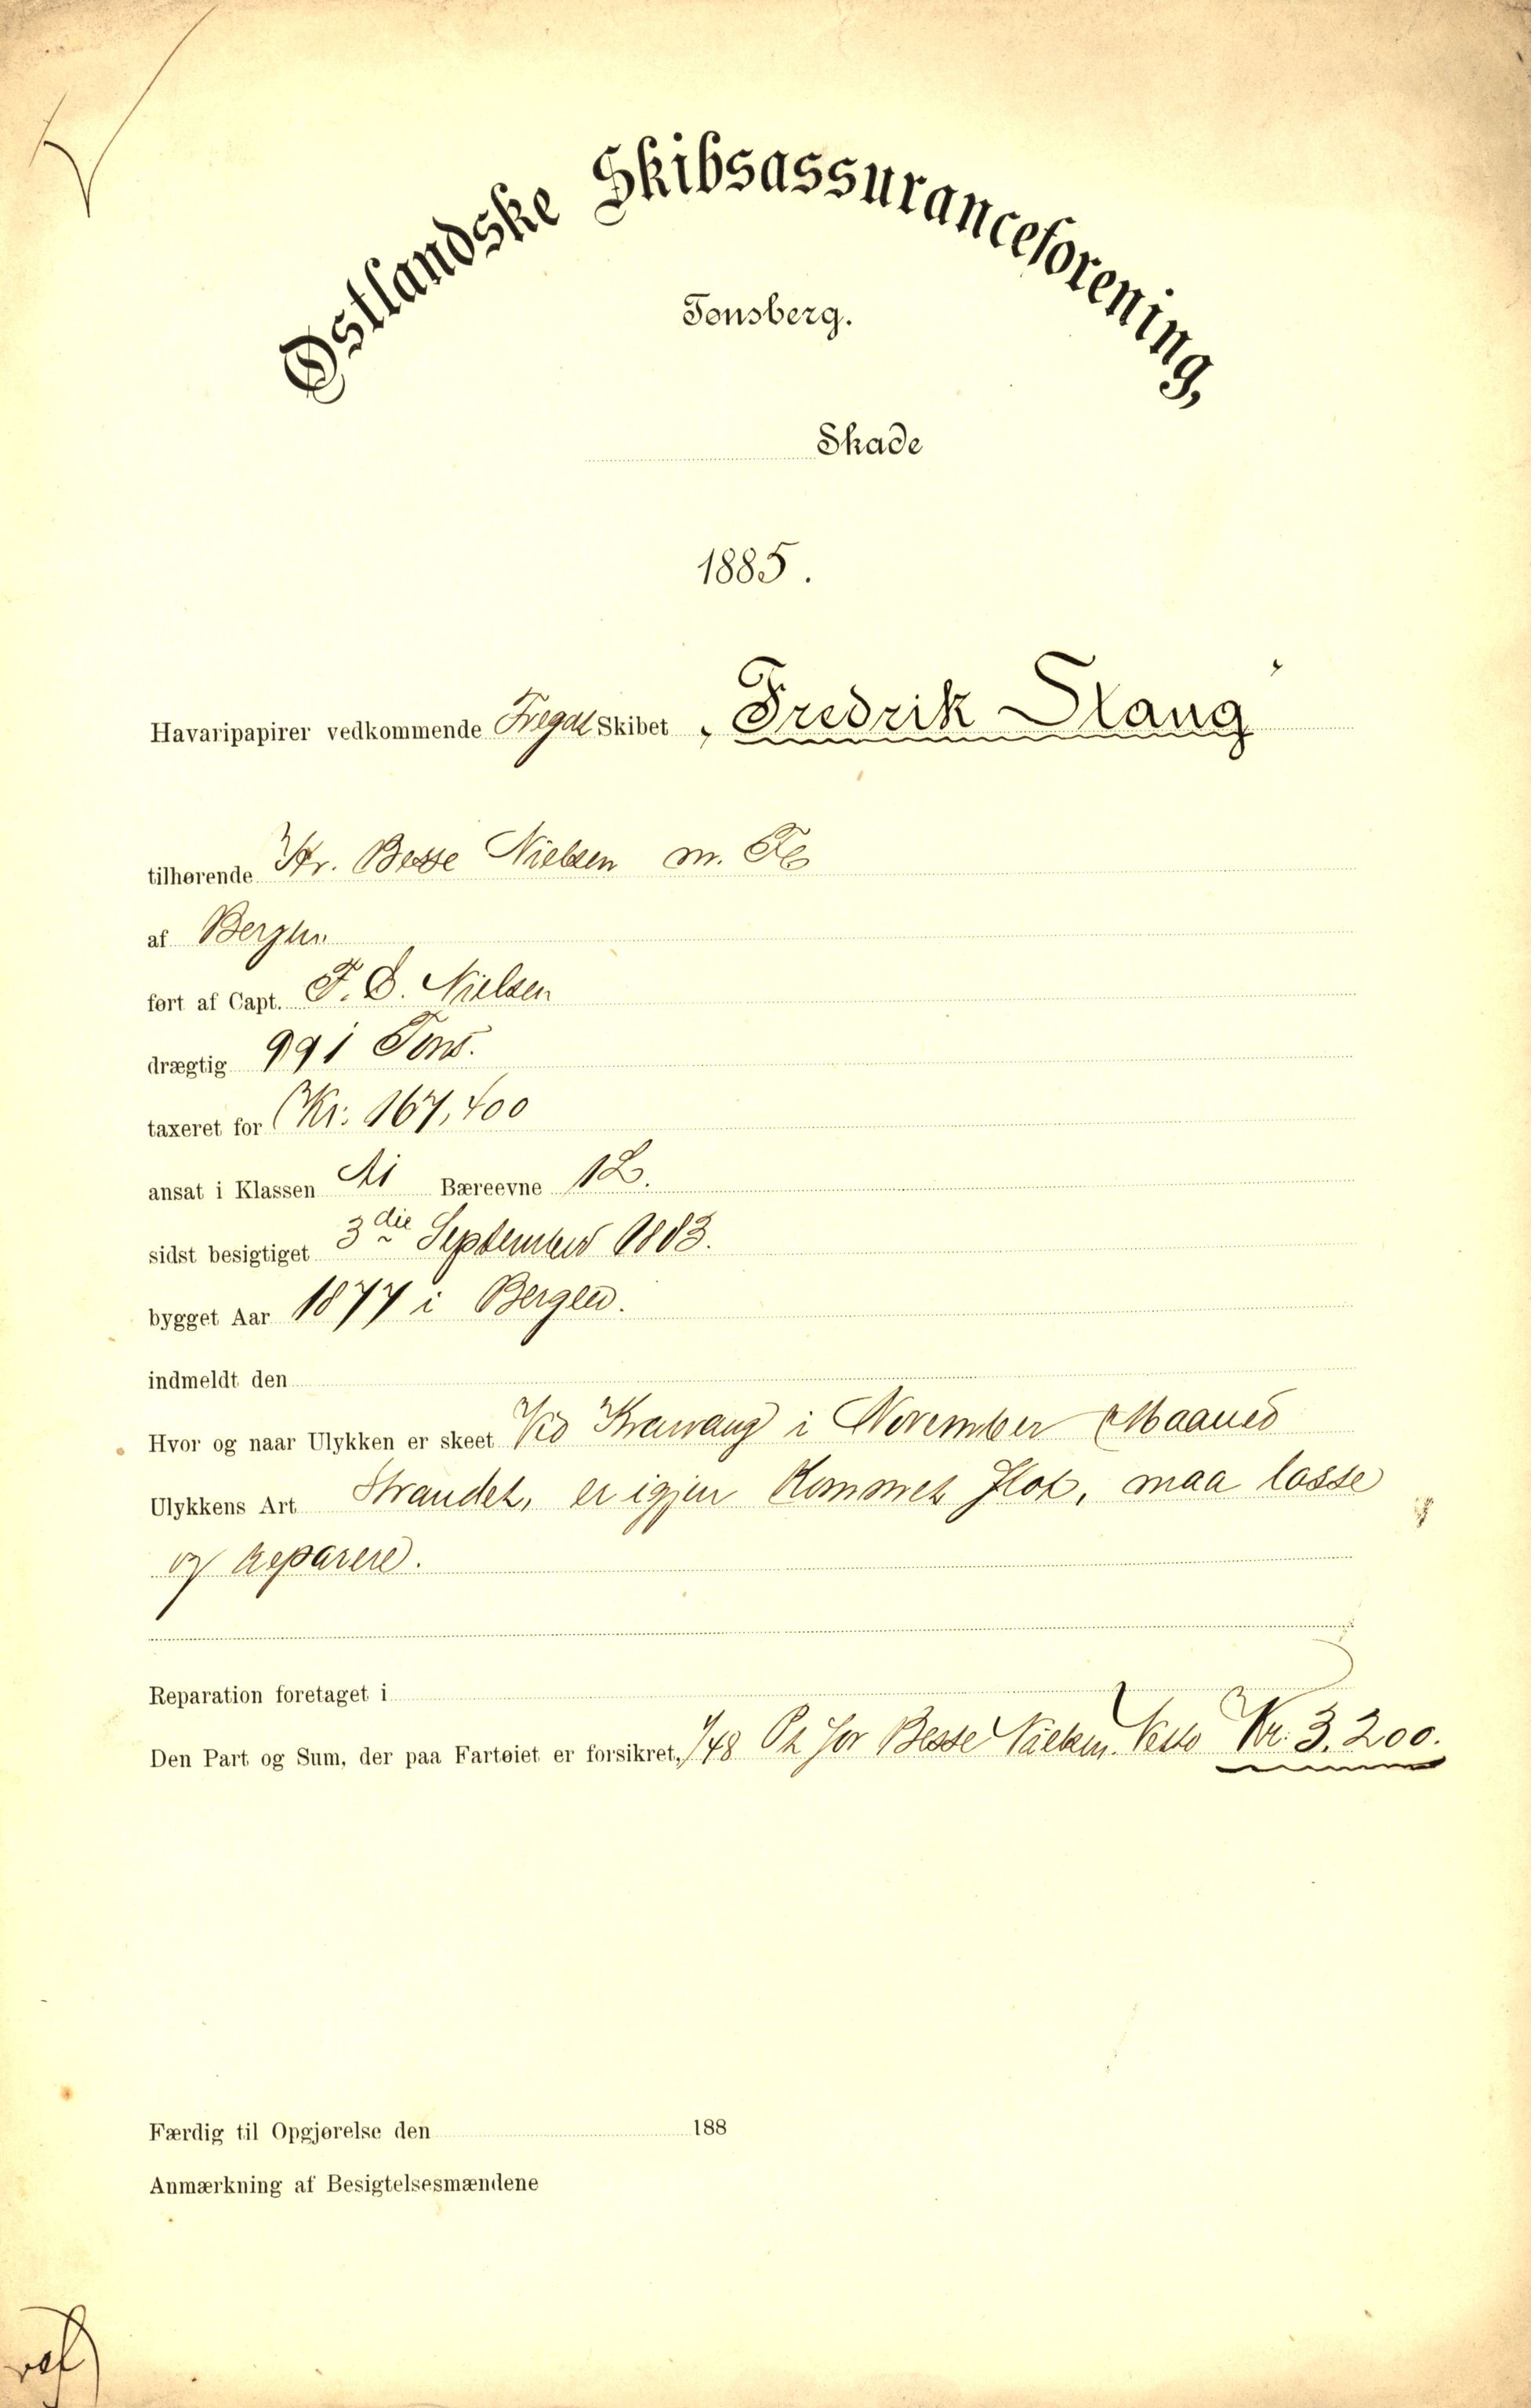 Østlandske Skibsassuranceforening,
Tønsberg.
Skade
1885.
Havaripapirer vedkommende Fregat Skibet „Fredrik Stang“
tilhørende Kr. Besse Nielsen m. Fl
af Bergen
ført af Capt. F. D. Nielsen
drægtig 991 Tons.
taxeret for Kr: 167,400
ansat i Klassen A1 Bæreevne 1L.
sidst besigtiget 3die September 1883.
bygget Aar 1877 i Bergen.
indmeldt den
Hvor og naar Ulykken er skeet Ved Krawang i November Maaned
Ulykkens Art Strandet, er igjen kommet flot, maa losse
og reparere.
Reparation foretaget i
Den Part og Sum, der paa Fartøiet er forsikret, 1/48 Pt for Besse Nielsen. Netto Kr. 3,200.
Færdig til Opgjørelse den 188
Anmærkning af Besigtelsesmændene